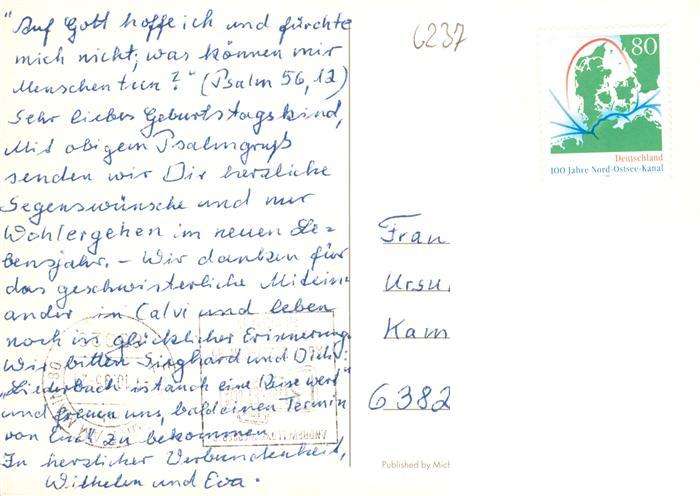 "Auf Gott hoffe ich und fürchte
mich nicht; was können mir
Menschen tun?" (Psalm 56,12)
Sehr liebes Geburtstagskind,
Mit obigem Psalmgruß
senden wir Dir herzliche
Segenswünsche und nur
Wohlergehen im neuen Le-
bensjahr. – Wir danken für
das geschwisterliche Mitein-
ander in Calvi und leben
noch in glücklicher Erinnerung.
Wir bitten Sieghard und Dich:
"Liederbach ist auch eine Reise wert"
und freuen uns, bald einen Termin
von Euch zu bekommen.
In herzlicher Verbundenheit,
Wilhelm und Eva.
6237
80
Deutschland
100 Jahre Nord-Ostsee-Kanal
Frau
Ursu
Kam
6382
Published by Mich